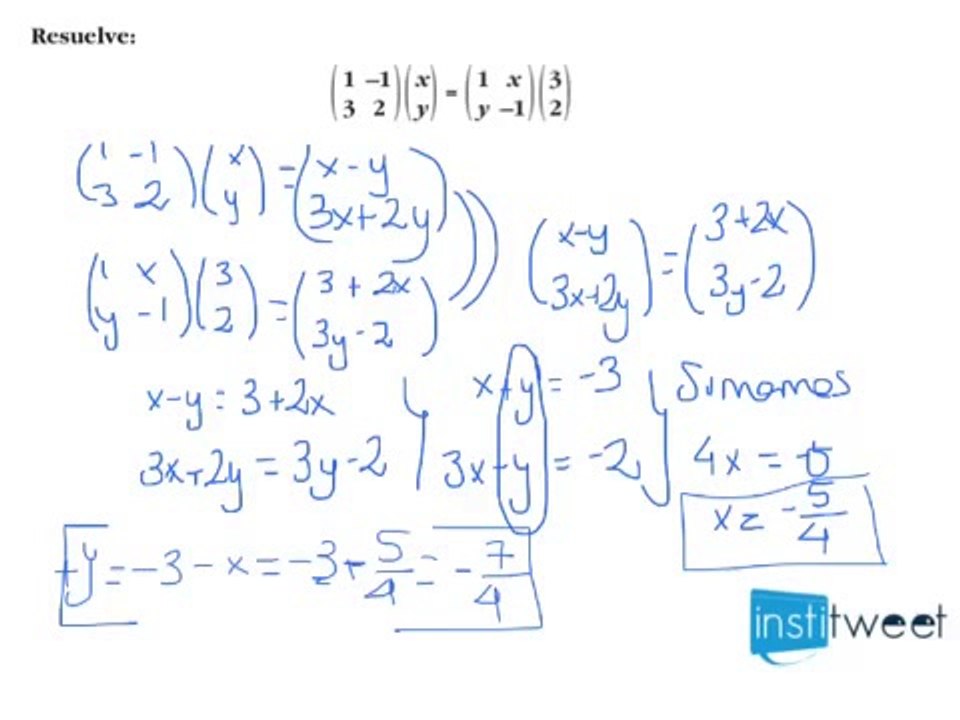 Resuelve:
(1 −1
3 2)(x
y) = (1 x
y −1)(3
2)
(1 -1
3 2)(x
y) = (x - y
3x+2y)
(1 x
y -1)(3
2) = (3 + 2x
3y - 2)
(x-y
3x+2y) = (3+2x
3y-2)
x-y = 3+2x
3x+2y = 3y-2
x+y = -3
3x-y = -2
Sumamos
4x = -5
x = -5/4
+y = -3 - x = -3 + 5/4 = -7/4
institweet